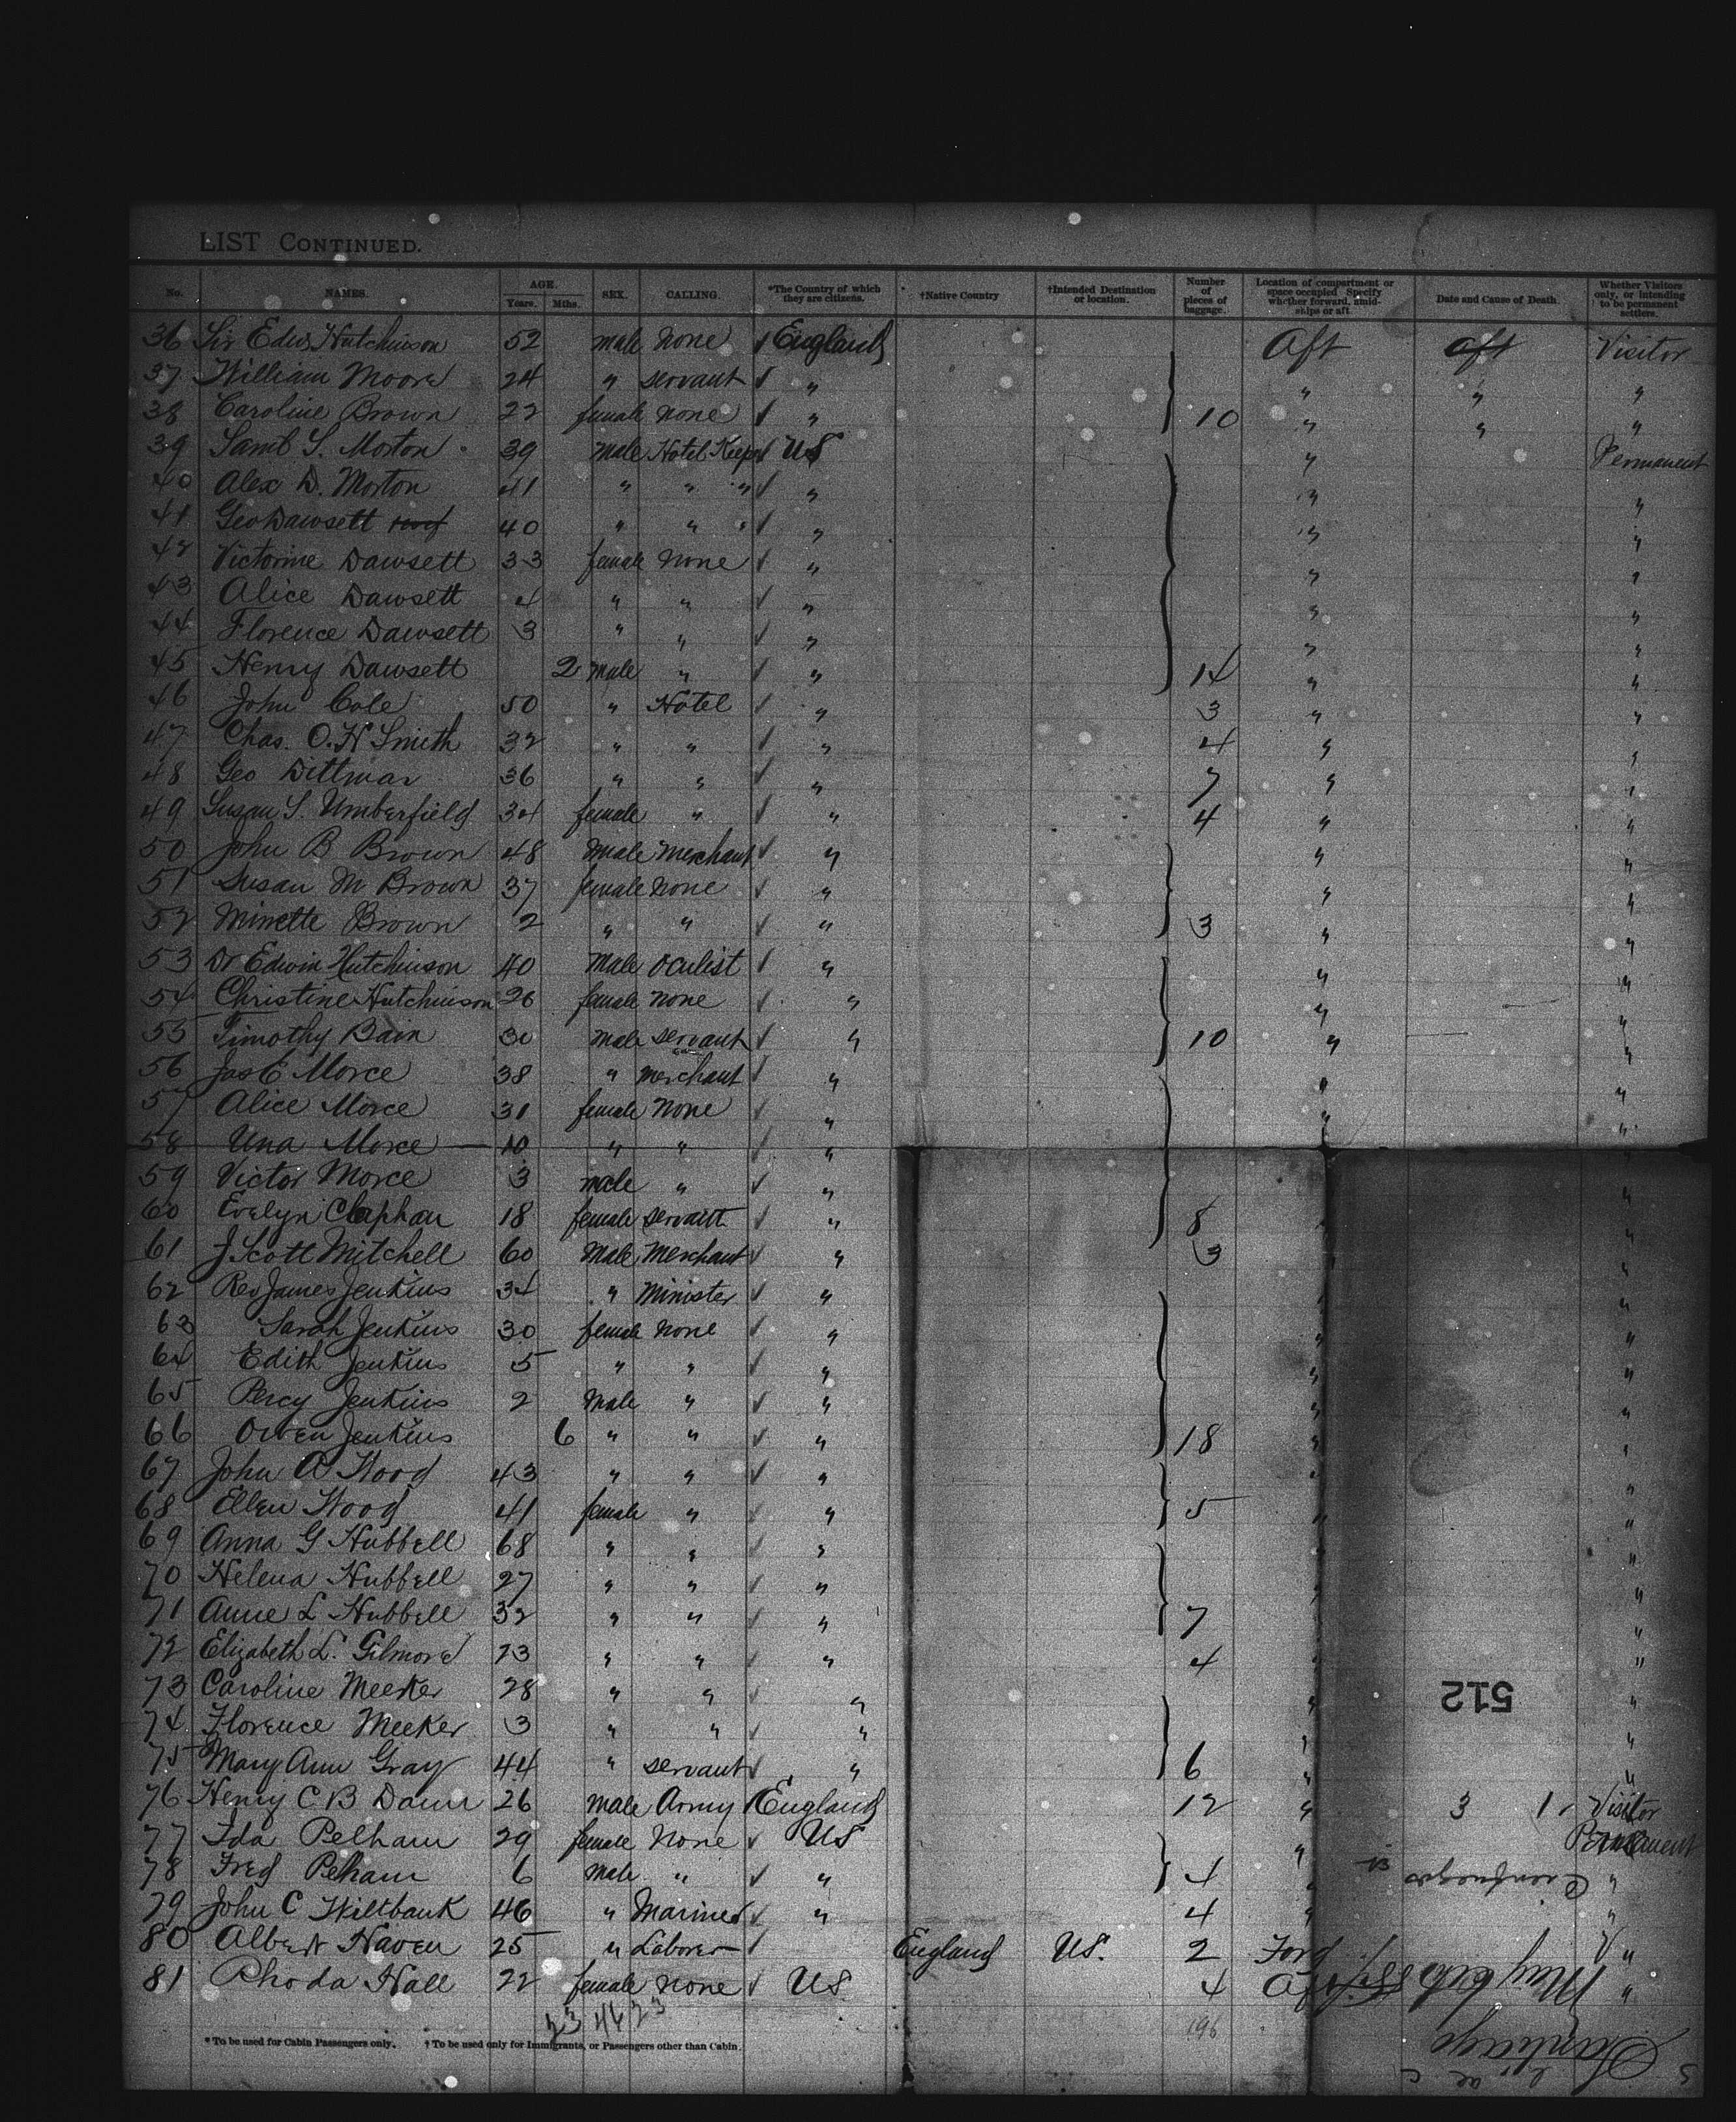 LIST CONTINUED.
No. NAMES. AGE. Years. Mths. SEX. CALLING. *The Country of which they are citizens. †Native Country †Intended Destination or location. Number of pieces of baggage. Location of compartment or space occupied Specify whether forward, amid-ships or aft Date and Cause of Death. Whether Visitors only, or intending to be permanent settlers.
36 Sir Edw Hutchinson 52 male none ✓ England Aft aft Visitor
37 William Moore 24 " servant ✓ " " " "
38 Caroline Brown 22 female none ✓ " 10 " " "
39 Saml S. Morton 39 male Hotel Keeper ✓ US " Permanent
40 Alex D. Morton 41 " " " ✓ " " "
41 Geo Dawsett 40 " " " ✓ " " "
42 Victorine Dawsett 33 female none ✓ " " "
43 Alice Dawsett 4 " " ✓ " " "
44 Florence Dawsett 3 " " ✓ " " "
45 Henry Dawsett 2 male " ✓ " 14 " "
46 John Cole 50 " Hotel ✓ " 3 " "
47 Chas. O. H Smith 32 " " ✓ " 4 " "
48 Geo Dittmar 36 " " ✓ " 7 " "
49 Susan S. Umberfield 34 female " ✓ " 4 " "
50 John B Brown 48 male merchant ✓ " " "
51 Susan M Brown 37 female none ✓ " " "
52 Minette Brown 2 " " ✓ " 3 " "
53 Dr Edwin Hutchinson 40 male oculist ✓ " " "
54 Christine Hutchinson 26 female none ✓ " " "
55 Timothy Bain 30 male servant ✓ " 10 " "
56 Jas E Morce 38 " merchant ✓ " " "
57 Alice Morce 31 female none ✓ " " "
58 Una Morce 10 " " ✓ " "
59 Victor Morce 3 male " ✓ " "
60 Evelyn Clapham 18 female servant ✓ " 8 "
61 J. Scott Mitchell 60 male merchant ✓ " 3 "
62 Rev James Jenkins 34 " minister ✓ " " "
63 Sarah Jenkins 30 female none ✓ " " "
64 Edith Jenkins 5 " " ✓ " " "
65 Percy Jenkins 2 male " ✓ " " "
66 Owen Jenkins 6 " " ✓ " 18 " "
67 John A Wood 43 " " ✓ " " "
68 Ellen Wood 41 female " ✓ " 5 " "
69 Anna G Hubbell 68 " " ✓ " " "
70 Helena Hubbell 27 " " ✓ " " "
71 Anne L Hubbell 32 " " ✓ " 7 " "
72 Elizabeth L. Gilmore 23 " " ✓ " 4 " "
73 Caroline Meeker 28 " " ✓ " " "
512
74 Florence Meeker 3 " " ✓ " " "
75 Mary Ann Gray 44 " servant ✓ " 6 " "
76 Henry C B Daun 26 male Army ✓ England 12 " 3 1 Visitor
77 Ida Pelham 29 female none ✓ US " Permanent
78 Fred Pelham 6 male " ✓ " 4 " "
Cienfuegos
79 John C Wiltbank 46 " Mariner ✓ " 4 " "
80 Albert Haven 25 " Laborer ✓ England US. 2 Ford "
81 Rhoda Hall 22 female none ✓ US. 4 Aft "
May 6th
23 46 23
196
* To be used for Cabin Passengers only. † To be used only for Immigrants, or Passengers other than Cabin.
Santiago